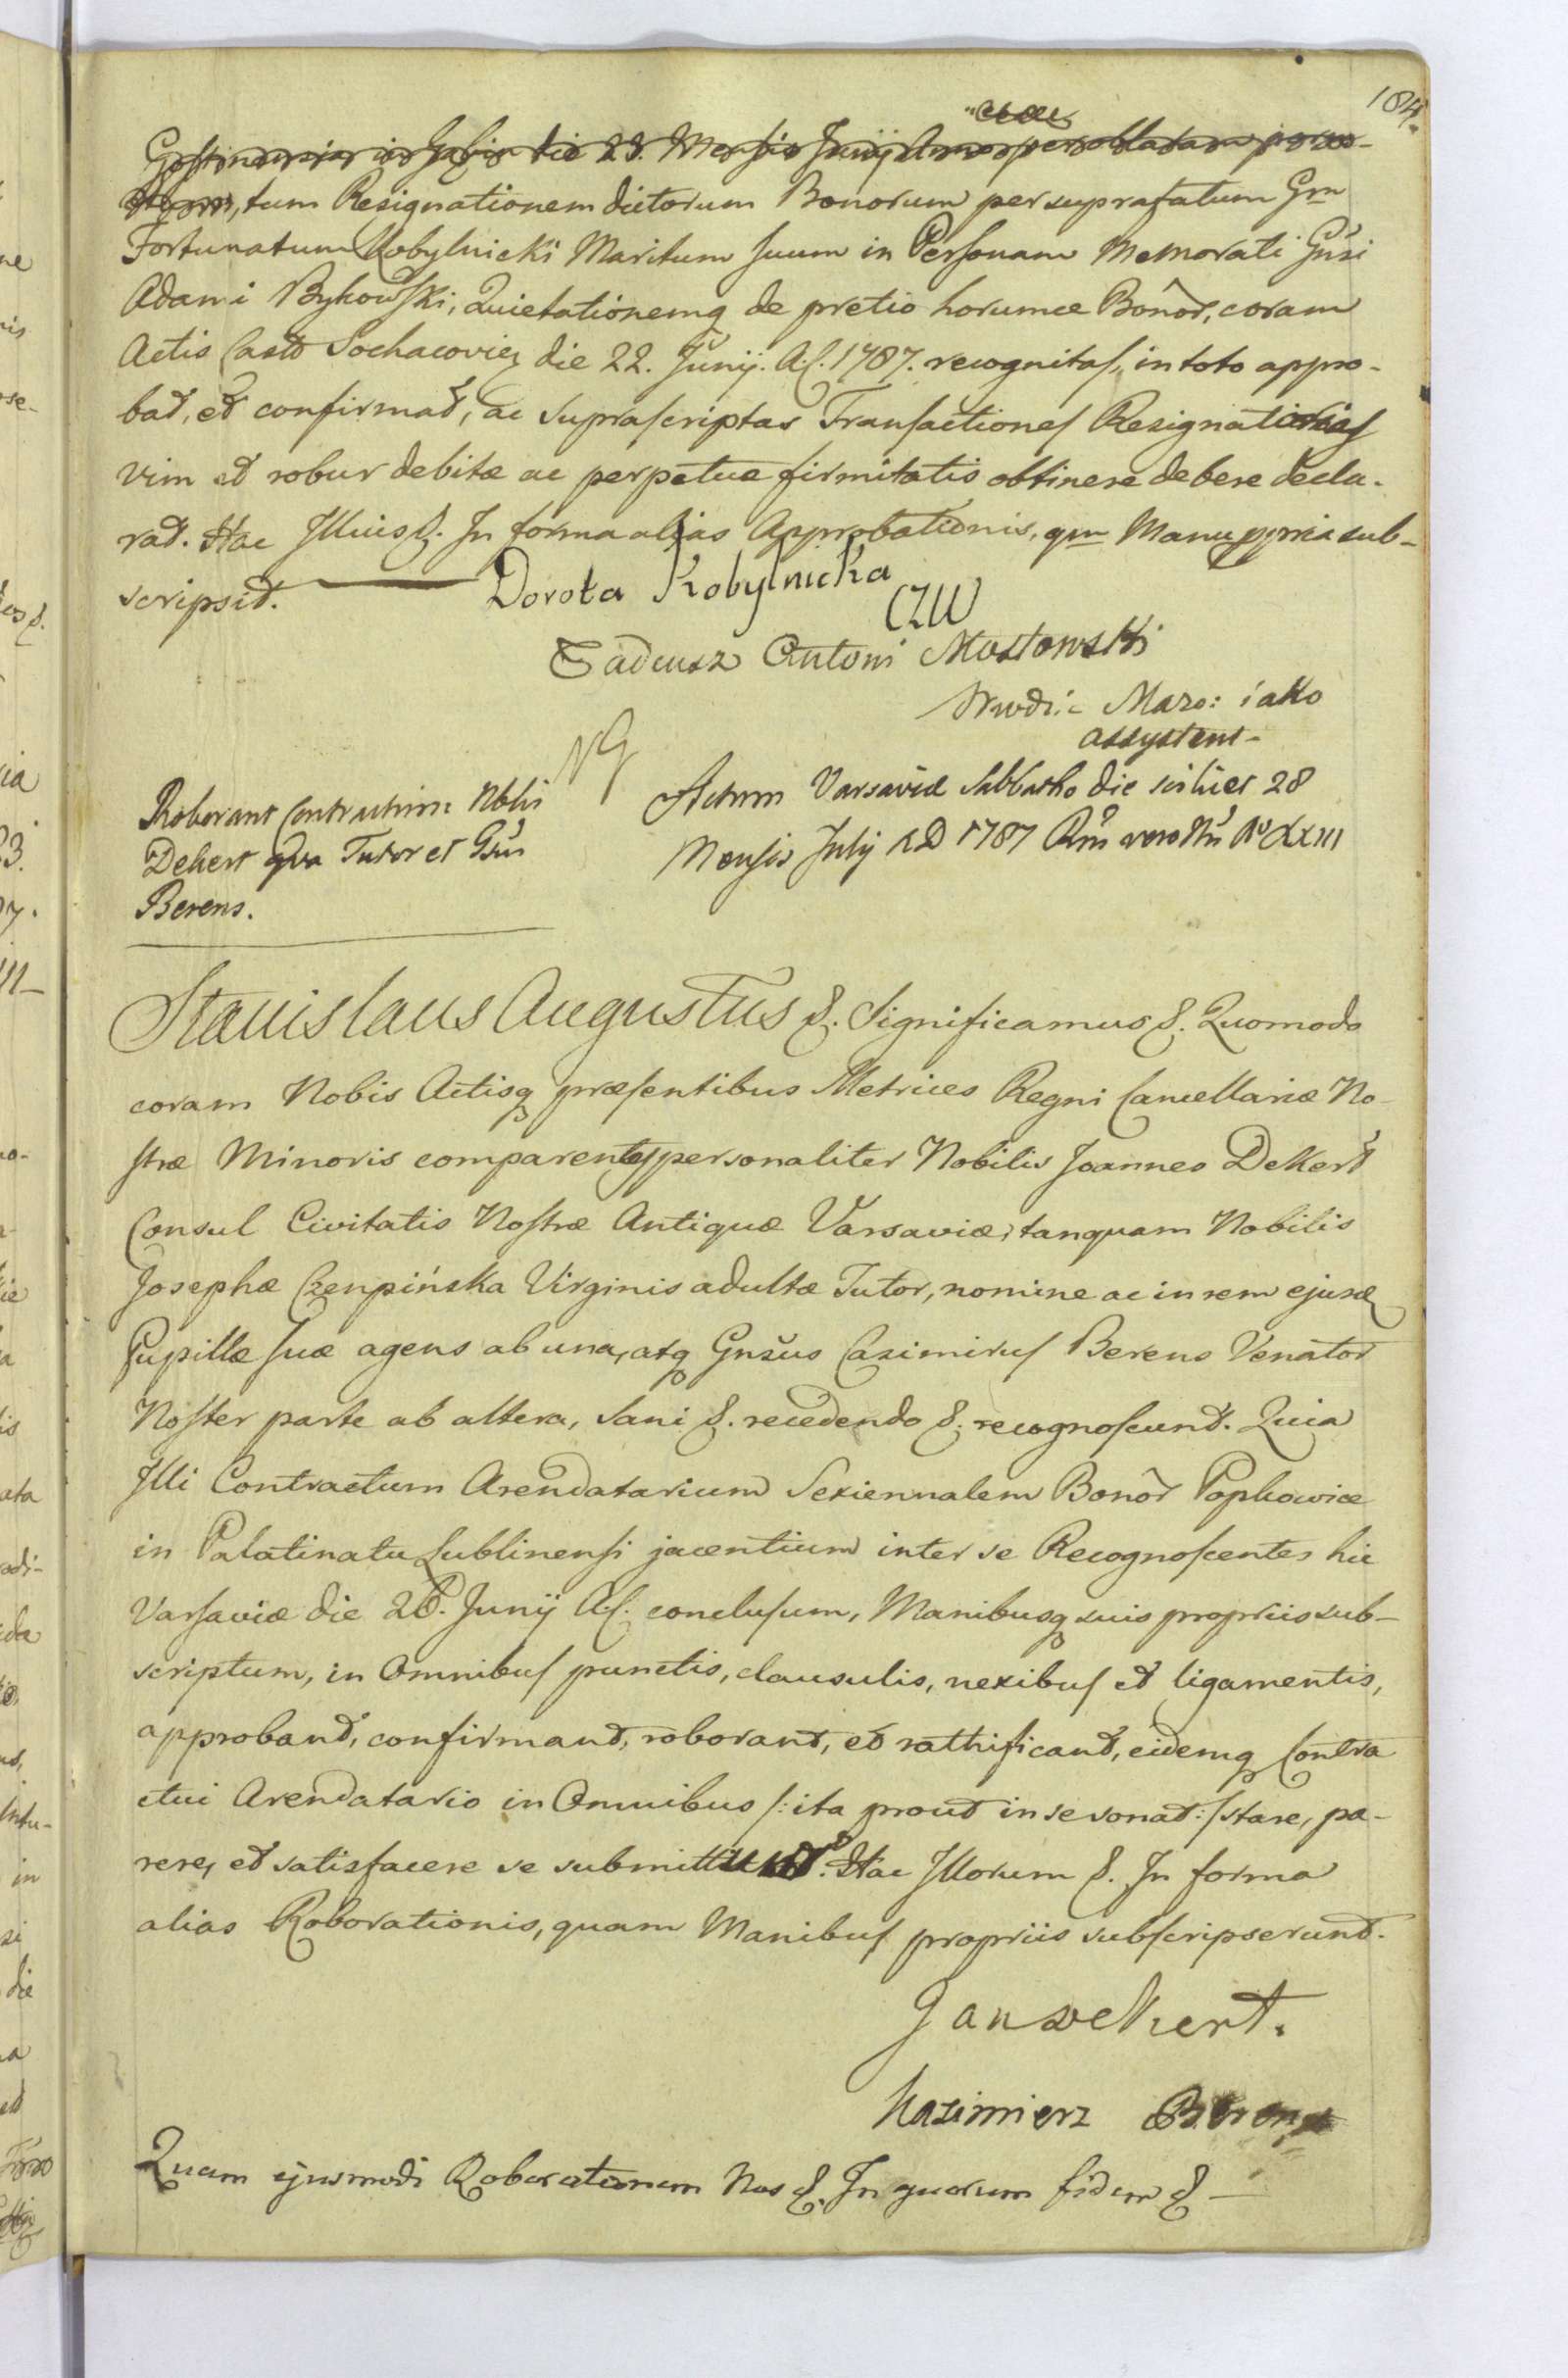 184.
Gostinensia in Gąbin die 28. Mensis Junij Anno per oblatam porre-
ctam, tum Resignationem dictorum Bonorum per suprafatum Gm
Fortunatum Kobylnicki Maritum suum in Personam Memorati Gnsi
Adami Bykowski, Quietationemq de pretio horumce Bonor, coram
Actis Castr Sochacovien die 22. Junij. A.c. 1787. recognitas, in toto appro-
bat, et confirmat, ac suprascriptas Transactiones Resignatorias
vim et robur debitæ ac perpetuæ firmitatis obtinere debere decla-
rat. Hac Illius &. In forma alias Approbationis, qm Manu ppria sub-
scripsit.
Dorota Kobylnicka
CZW
Tadeusz Antoni Mostowski
Wwdzic Mazo: iako
assystent
NG
Roborant Contractum Nblis
Dekert qva Tutor et Gsus
Berens.
Actum Varsaviæ Sabbatho die scilicet 28
Mensis July AD 1787 Rni vero Nri Ao XXIII
Stanislaus Augustus &. Significamus &. Quomodo
coram Nobis Actisq præsentibus Metrices Regni Cancellariæ No-
stræ Minoris comparentes personaliter Nobilis Joannes Dekert
Consul Civitatis Nostræ Antiquæ Varsaviæ, tanquam Nobilis
Josephæ Czenpińska Virginis adultæ Tutor, nomine ac in rem ejusd
Pupillæ suæ agens ab una, atq Gnsus Casimirus Berens Venator
Noster parte ab altera, sani &. recedendo &. recognoscunt. Quia
Illi Contractum Arendatarium Sexiennalem Bonor Popkowice
in Palatinatu Lublinensi jacentium inter se Recognoscentes hic
Varsaviæ die 26. Junij A.c. conclusum, Manibusq suis propriis sub-
scriptum, in Omnibus punctis, clausulis, nexibus et ligamentis,
approbant, confirmant, roborant, et rathificant, eidemq Contra
ctui Arendatario in Omnibus /: ita prout in se sonat :/ stare, pa-
rere, et satisfacere se submittunt. Hac Illorum &. In forma
alias Roborationis, quam Manibus propriis subscripserunt.
Jan Dekert.
Kazimierz Berens
Quam ejusmodi Roborationem Nos &. In quorum fidem &